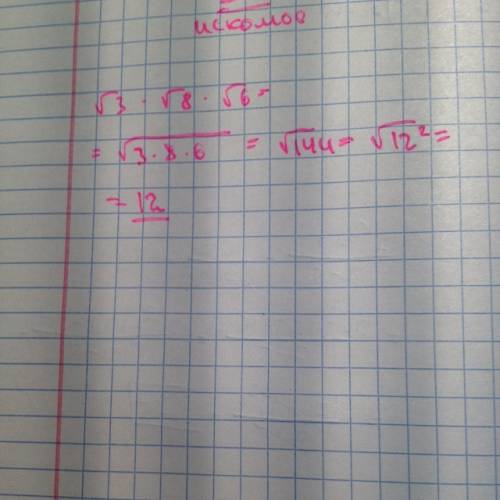 искомое
√3 · √8 · √6 =
= √3·8·6 = √144 = √12² =
= 12